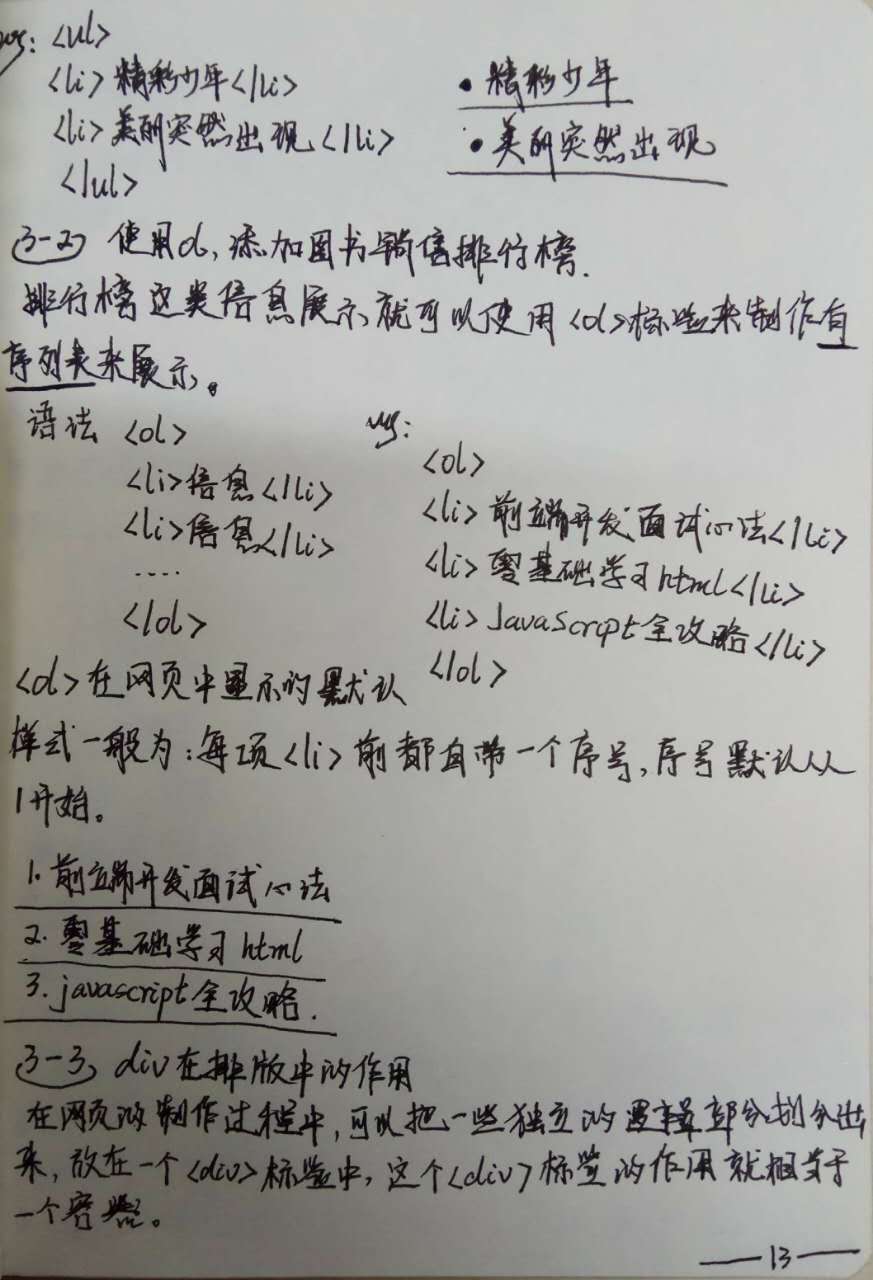 eg: <ul>
<li>精彩少年</li>
<li>美丽突然出现</li>
</ul>
• 精彩少年
• 美丽突然出现
3-2 使用ol,添加图书销售排行榜.
排行榜这类信息展示就可以使用<ol>标签来制作有
序列表来展示。
语法 <ol>
<li>信息</li>
<li>信息</li>
....
</ol>
eg:
<ol>
<li>前端开发面试心法</li>
<li>零基础学习html</li>
<li>JavaScript全攻略</li>
</ol>
<ol>在网页中显示的默认
样式一般为:每项<li>前都自带一个序号,序号默认从
1开始。
1.前端开发面试心法
2.零基础学习html
3.javascript全攻略.
3-3 div在排版中的作用
在网页的制作过程中,可以把一些独立的逻辑部分划分出
来,放在一个<div>标签中,这个<div>标签的作用就相当于
一个容器。
—13—